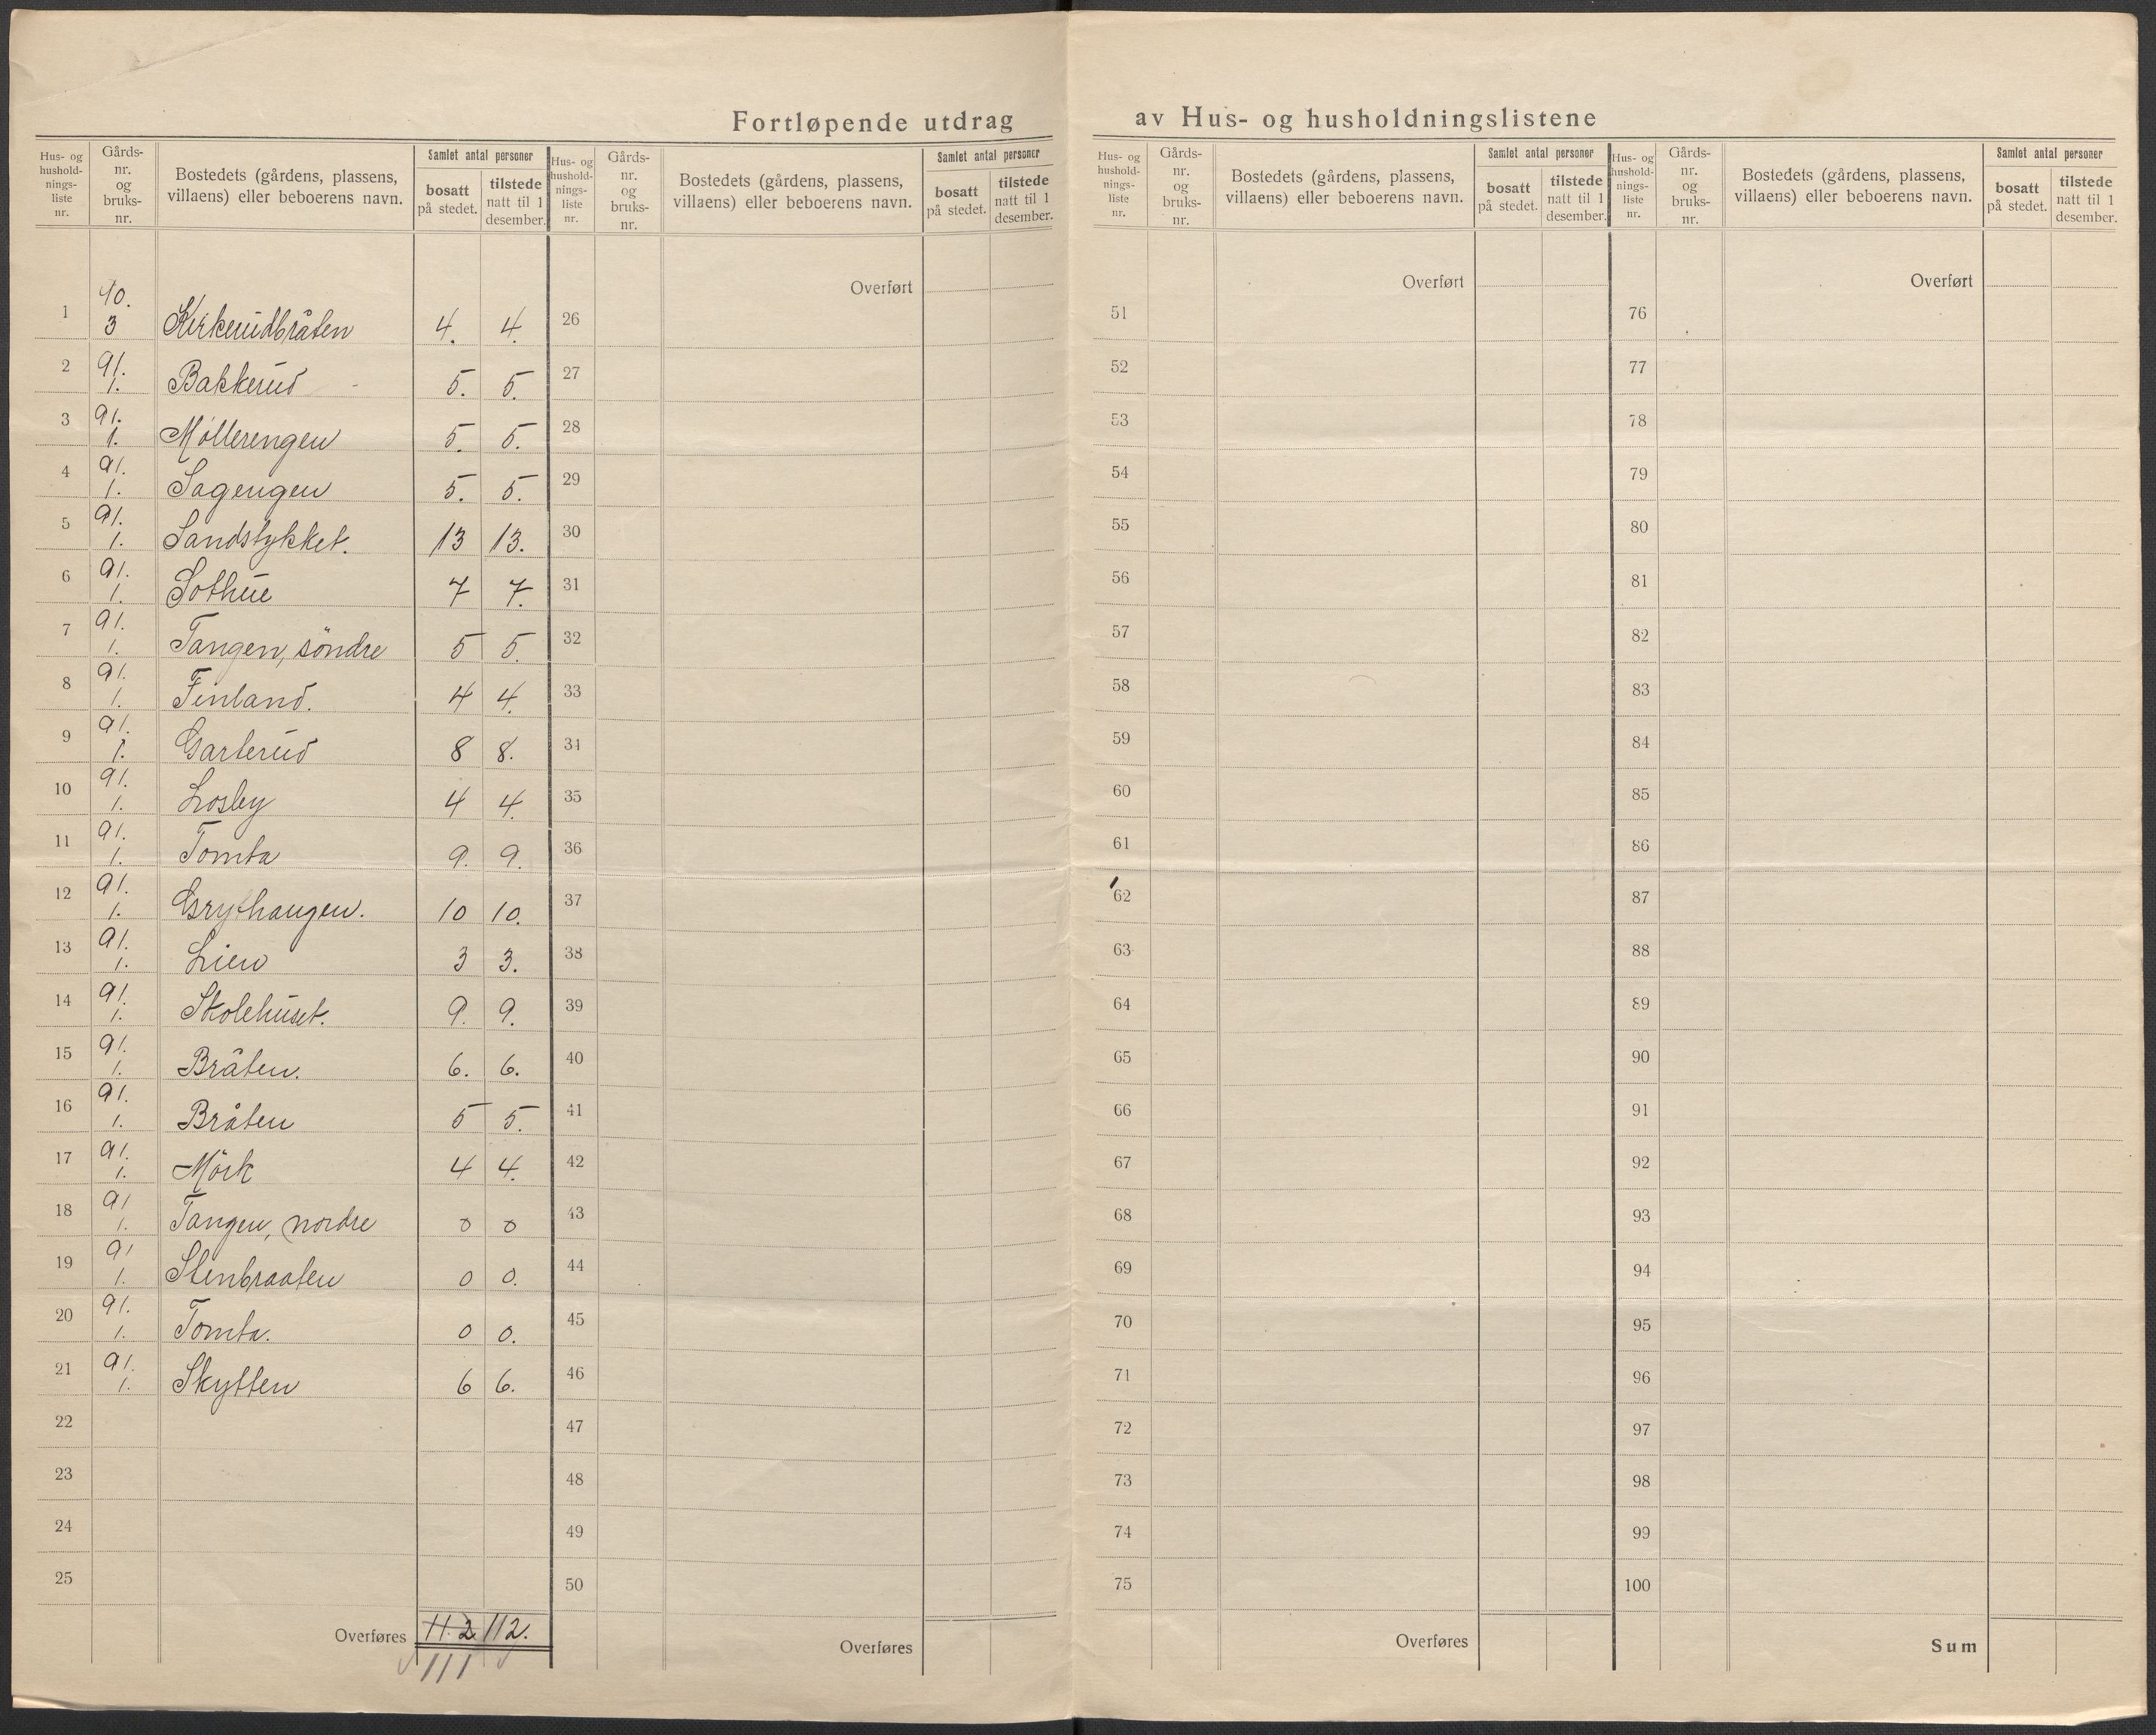 Fortløpende utdrag av Hus- og husholdningslistene
Hus- og hushold-nings-liste nr. Gårds-nr. og bruks-nr. Bostedets (gårdens, plassens, villaens) eller beboerens navn. Samlet antal personer bosatt på stedet. tilstede natt til 1 desember.
Hus- og hushold-nings-liste nr. Gårds-nr. og bruks-nr. Bostedets (gårdens, plassens, villaens) eller beboerens navn. Samlet antal personer bosatt på stedet. tilstede natt til 1 desember.
Hus- og hushold-nings-liste nr. Gårds-nr. og bruks-nr. Bostedets (gårdens, plassens, villaens) eller beboerens navn. Samlet antal personer bosatt på stedet. tilstede natt til 1 desember.
Hus- og hushold-nings-liste nr. Gårds-nr. og bruks-nr. Bostedets (gårdens, plassens, villaens) eller beboerens navn. Samlet antal personer bosatt på stedet. tilstede natt til 1 desember.
1 40. 3 Kirkerudbråten 4. 4.
2 91. 1. Bakkerud 5. 5.
3 91. 1. Möllerengen 5. 5.
4 91. 1. Sagengen 5. 5.
5 91. 1. Sandstykket. 13 13.
6 91. 1. Sothue 7 7.
7 91. 1. Tangen, söndre 5 5.
8 91. 1. Finland. 4 4.
9 91. 1. Garterud 8 8.
10 91. 1. Losby 4 4.
11 91. 1. Tomta 9. 9.
12 91. 1. Grythaugen. 10 10.
13 91. 1. Lien 3 3.
14 91. 1. Skolehuset. 9. 9.
15 91. 1. Bråten. 6. 6.
16 91. 1. Bråten 5 5.
17 91. 1. Mörk 4 4.
18 91 1. Tangen, nordre 0 0
19 91 1. Stenbraaten 0 0.
20 91. 1. Tomta. 0 0.
21 91. 1. Skytten 6 6.
22
23
24
25
Overføres 112 112.
111
Overført
26
27
28
29
30
31
32
33
34
35
36
37
38
39
40
41
42
43
44
45
46
47
48
49
50
Overføres
Overført
51
52
53
54
55
56
57
58
59
60
61
62
63
64
65
66
67
68
69
70
71
72
73
74
75
Overføres
Overført
76
77
78
79
80
81
82
83
84
85
86
87
88
89
90
91
92
93
94
95
96
97
98
99
100
Sum